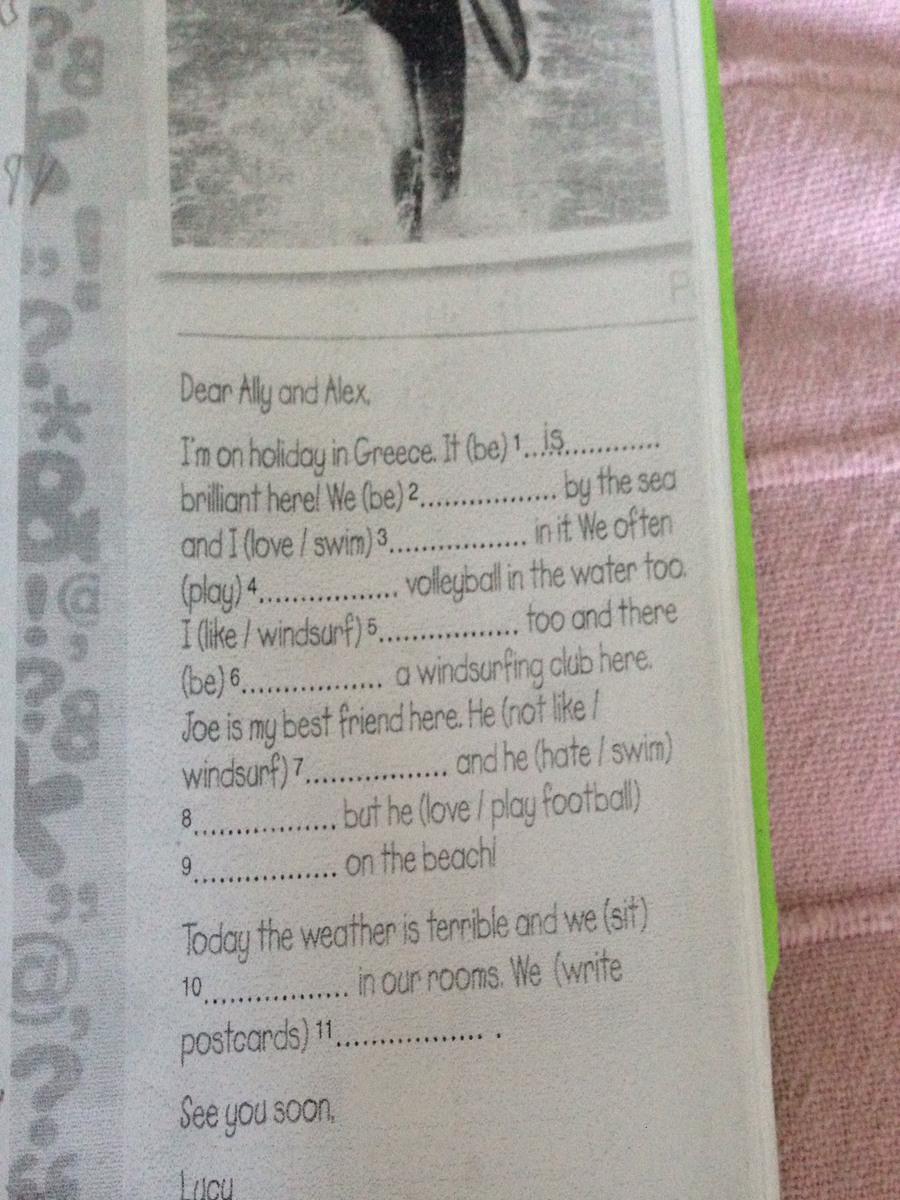 Dear Ally and Alex,
I'm on holiday in Greece. It (be) 1...is.............
brilliant here! We (be) 2................. by the sea
and I (love / swim) 3................. in it. We often
(play) 4................. volleyball in the water too.
I (like / windsurf) 5................. too and there
(be) 6................. a windsurfing club here.
Joe is my best friend here. He (not like /
windsurf) 7................. and he (hate / swim)
8................. but he (love / play football)
9................. on the beach!
Today the weather is terrible and we (sit)
10................. in our rooms. We (write
postcards) 11................. .
See you soon,
Lucy